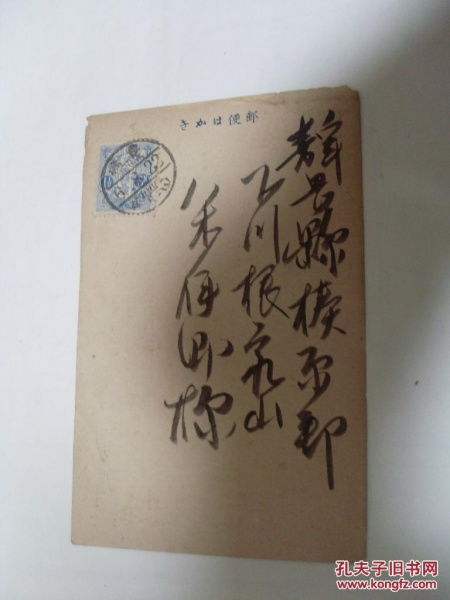 郵便はかき
静岡縣榛原郡
下川根家山
様
孔夫子旧书网
www.kongfz.com